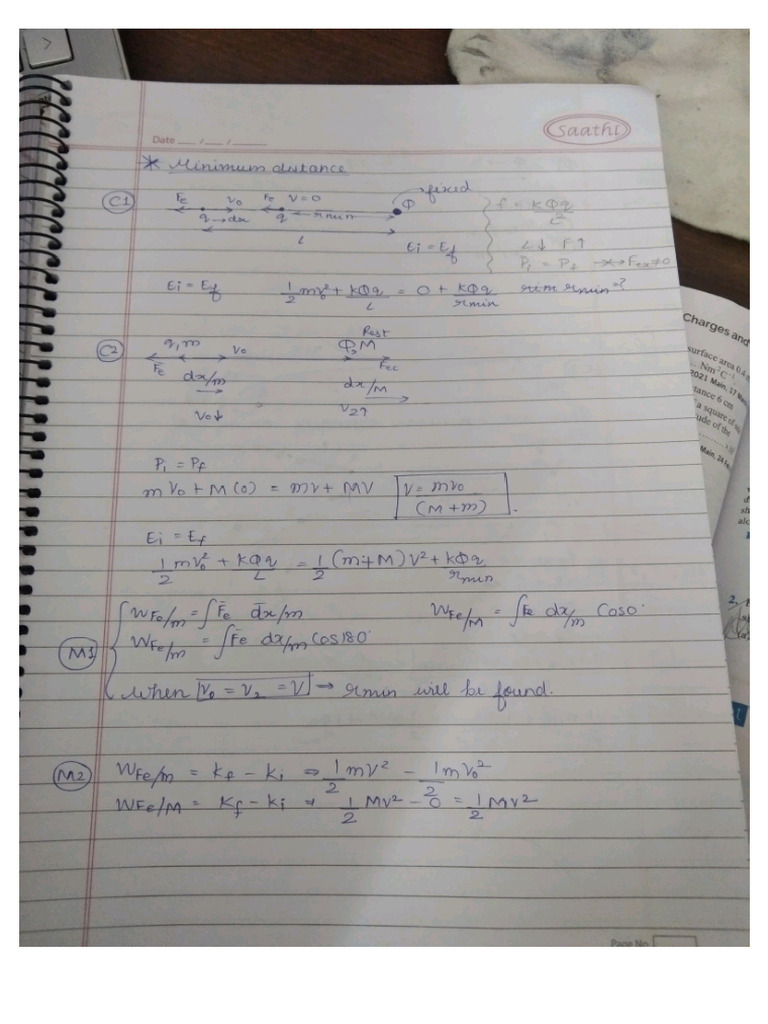 saathi
Date __ / __ / ____
* Minimum distance
C1 Fe v0 Fe V=0 fixed
q → dx q rmin Q
L
f = kQq / L²
L↓ F↑
Ei = Ef
Pi = Pf Fex≠0
Ei = Ef 1/2 mv0² + kQq/L = 0 + kQq/rmin rmin=?
C2 q,m v0 Rest Q,M
Fe Fe
dx/m dx/M
v0↓ V2↑
Pi = Pf
m V0 + M(0) = mv + MV V = mv0 / (M+m).
Ei = Ef
1/2 mv0² + kQq/L = 1/2 (m+M) V² + kQq/rmin
M1
WFe/m = ∫F̄e d̄x/m WFe/M = ∫Fe dx/m Cos0°
WFe/m = ∫F̄e dx/m Cos180°
when V0 = V2 = V → rmin will be found.
M2 WFe/m = Kf - Ki ⇒ 1/2 mV² - 1/2 mV0²
WFe/M = Kf - Ki ⇒ 1/2 MV² - 0 = 1/2 MV²
Page No
Charges and
surface area 0.4
Nm²C⁻¹.
2021 Main, 17
tance 6 cm
a square of
ude of the
Main, 24
2.